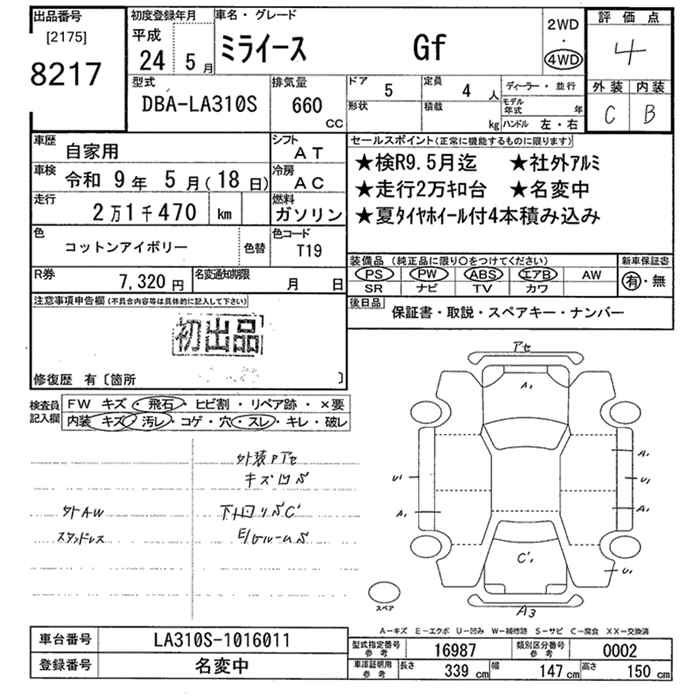 出品番号
[2175]
8217
初度登録年月
平成
24 5月
車名・グレード
ミライース Gf
2WD
・
4WD
評価点
4
外装 内装
C B
型式
DBA-LA310S
排気量
660
CC
ドア
5
定員
4 人
形状
積載
kg
ディーラー・並行
モデル年式 年
ハンドル 左・右
車歴
自家用
シフト
AT
車検
令和 9年 5月(18日)
冷房
AC
走行
2万1千470 km
燃料
ガソリン
色
コットンアイボリー
色替
色コード
T19
R券
7,320円
名変通知期限
月 日
セールスポイント(正常に機能するものに限ります)
★検R9.5月迄 ★社外アルミ
★走行2万キロ台 ★名変中
★夏タイヤホイール付4本積み込み
装備品(純正品に限り○をつけてください)
新車保証書
PS PW ABS エアB AW
SR ナビ TV カワ
有・無
後日品
保証書・取説・スペアキー・ナンバー
注意事項申告欄(不具合内容等は具体的に記入して下さい)
初出品
修復歴 有〔箇所 〕
検査員記入欄
FW キズ・飛石・ヒビ割・リペア跡・×要
内装 キズ・汚レ・コゲ・穴・スレ・キレ・破レ
外装Pアセ
キズ凹P
外AW
スタッドレス
アセ
A₁
A₁
U₁
U₁
A₁
A₁
U₁
C'₁
A3
スペア
A-キズ E-エクボ U-凹み W-補修跡 S-サビ C-腐食 XX-交換済
車台番号
LA310S-1016011
登録番号
名変中
型式指定番号
参考
16987
類別区分番号
参考
0002
車庫証明用
参考
長さ 339 cm
幅 147 cm
高さ 150 cm